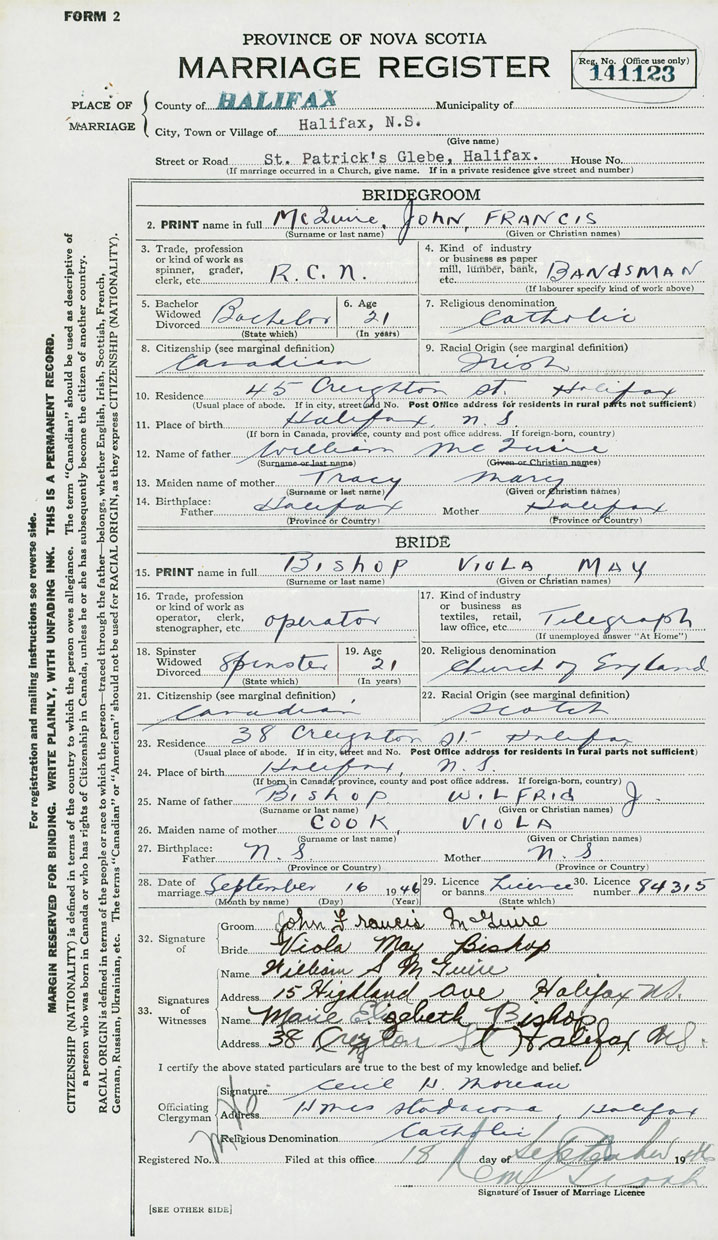 FORM 2
PROVINCE OF NOVA SCOTIA
MARRIAGE REGISTER
Reg. No. (Office use only)
141123
PLACE OF MARRIAGE
County of HALIFAX Municipality of
City, Town or Village of Halifax, N.S.
(Give name)
Street or Road St. Patrick's Glebe, Halifax. House No.
(If marriage occurred in a Church, give name. If in a private residence give street and number)
BRIDEGROOM
2. PRINT name in full McGuire, JOHN, FRANCIS
(Surname or last name) (Given or Christian names)
3. Trade, profession or kind of work as spinner, grader, clerk, etc. R.C.N.
4. Kind of industry or business as paper mill, lumber, bank, etc. BANDSMAN
(If labourer specify kind of work above)
5. Bachelor Widowed Divorced Bachelor
(State which)
6. Age 21
(In years)
7. Religious denomination Catholic
8. Citizenship (see marginal definition) Canadian
9. Racial Origin (see marginal definition) Irish
10. Residence 45 Creighton St. Halifax
(Usual place of abode. If in city, street and No. Post Office address for residents in rural parts not sufficient)
11. Place of birth Halifax, N.S.
(If born in Canada, province, county and post office address. If foreign-born, country)
12. Name of father William McGuire
(Surname or last name) (Given or Christian names)
13. Maiden name of mother Tracy Mary
(Surname or last name) (Given or Christian names)
14. Birthplace: Father Halifax Mother Halifax
(Province or Country) (Province or Country)
BRIDE
15. PRINT name in full BISHOP VIOLA, MAY
(Surname or last name) (Given or Christian names)
16. Trade, profession or kind of work as operator, clerk, stenographer, etc. operator
17. Kind of industry or business as textiles, retail, law office, etc. Telegraph
(If unemployed answer "At Home")
18. Spinster Widowed Divorced Spinster
(State which)
19. Age 21
(In years)
20. Religious denomination Church of England
21. Citizenship (see marginal definition) Canadian
22. Racial Origin (see marginal definition) Scotch
23. Residence 38 Creighton St. Halifax
(Usual place of abode. If in city, street and No. Post Office address for residents in rural parts not sufficient)
24. Place of birth Halifax, N.S.
(If born in Canada, province, county and post office address. If foreign-born, country)
25. Name of father BISHOP WILFRID J.
(Surname or last name) (Given or Christian names)
26. Maiden name of mother COOK, VIOLA
(Surname or last name) (Given or Christian names)
27. Birthplace: Father N.S. Mother N.S.
(Province or Country) (Province or Country)
28. Date of marriage September 16 1946
(Month by name) (Day) (Year)
29. Licence or banns Licence
(State which)
30. Licence number 84315
32. Signature of
Groom John Francis McGuire
Bride Viola May Bishop
33. Signatures of Witnesses
Name William S McGuire
Address 15 Highland Ave Halifax NS.
Name Marie Elizebeth Bishop
Address 38 Creyton St Halifax N.S.
I certify the above stated particulars are true to the best of my knowledge and belief.
Officiating Clergyman
Signature Cecil H. Moreau
Address Hmcs Stadacona, Halifax
Religious Denomination Catholic
Registered No. Filed at this office 18 day of September 1946
Signature of Issuer of Marriage Licence
[SEE OTHER SIDE]
For registration and mailing instructions see reverse side.
MARGIN RESERVED FOR BINDING. WRITE PLAINLY, WITH UNFADING INK. THIS IS A PERMANENT RECORD.
CITIZENSHIP (NATIONALITY) is defined in terms of the country to which the person owes allegiance. The term "Canadian" should be used as descriptive of
a person who was born in Canada or who has rights of Citizenship in Canada, unless he or she has subsequently become the citizen of another country.
RACIAL ORIGIN is defined in terms of the people or race to which the person—traced through the father—belongs, whether English, Irish, Scottish, French,
German, Russian, Ukrainian, etc. The terms "Canadian" or "American" should not be used for RACIAL ORIGIN, as they express CITIZENSHIP (NATIONALITY).